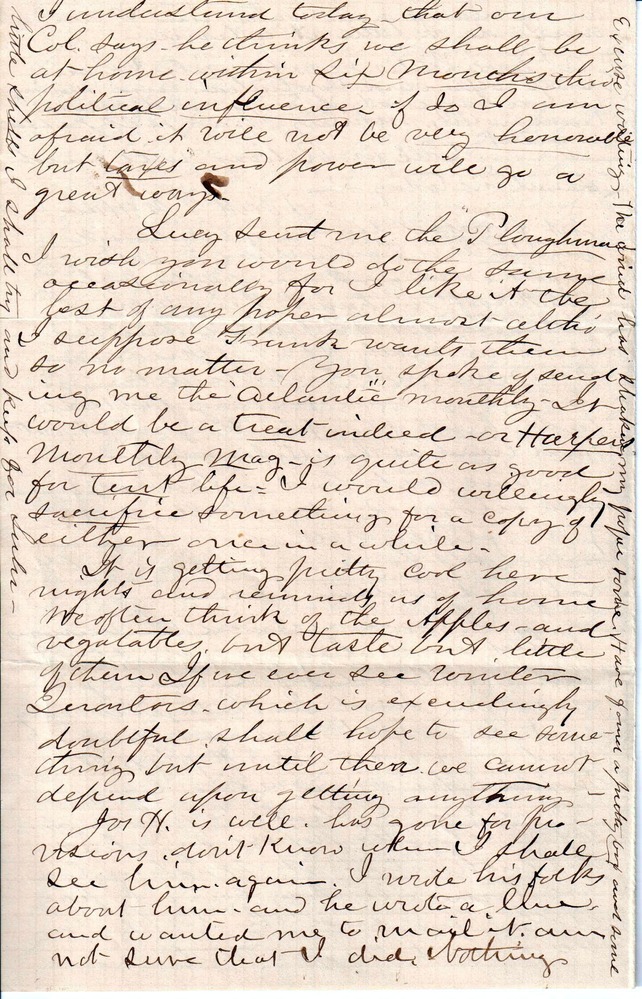 I understand today that our
Col. says he thinks we shall be
at home within Six Months thro
political influence - if so I am
afraid it will not be very honorable
but and power will go a
great ways.
Lucy sent me the Ploughman
I wish you would do the same
occasionally for I like it the
best of any paper almost altho
I suppose Frank wants them
so no matter - You spoke of send
ing me the "Atlantic" monthly - It
would be a treat indeed - or Harpers
Monthly Mag - is quite as good
for tent life - I would willingly
sacrifice something for a copy of
either once in a while -
It is getting pretty cool here
nights and reminds us of home
We often think of the Apples - and
vegatables, but taste but little
of them If we ever see Winter
Quarters - which is exceedingly
doubtful, shall hope to see some-
thing but until then we cannot
depend upon getting anything
Jos H. is well. has gone for pro-
visions. don't know when I shall
see him again. I wrote his folks
about him - and he wrote a line,
and wanted me to mail it. am
not sure that I did. Nothing
Excuse writing, The wind has shaken my paper some. Have found a pretty box and some
little shells I shall try and keep for Lulu -